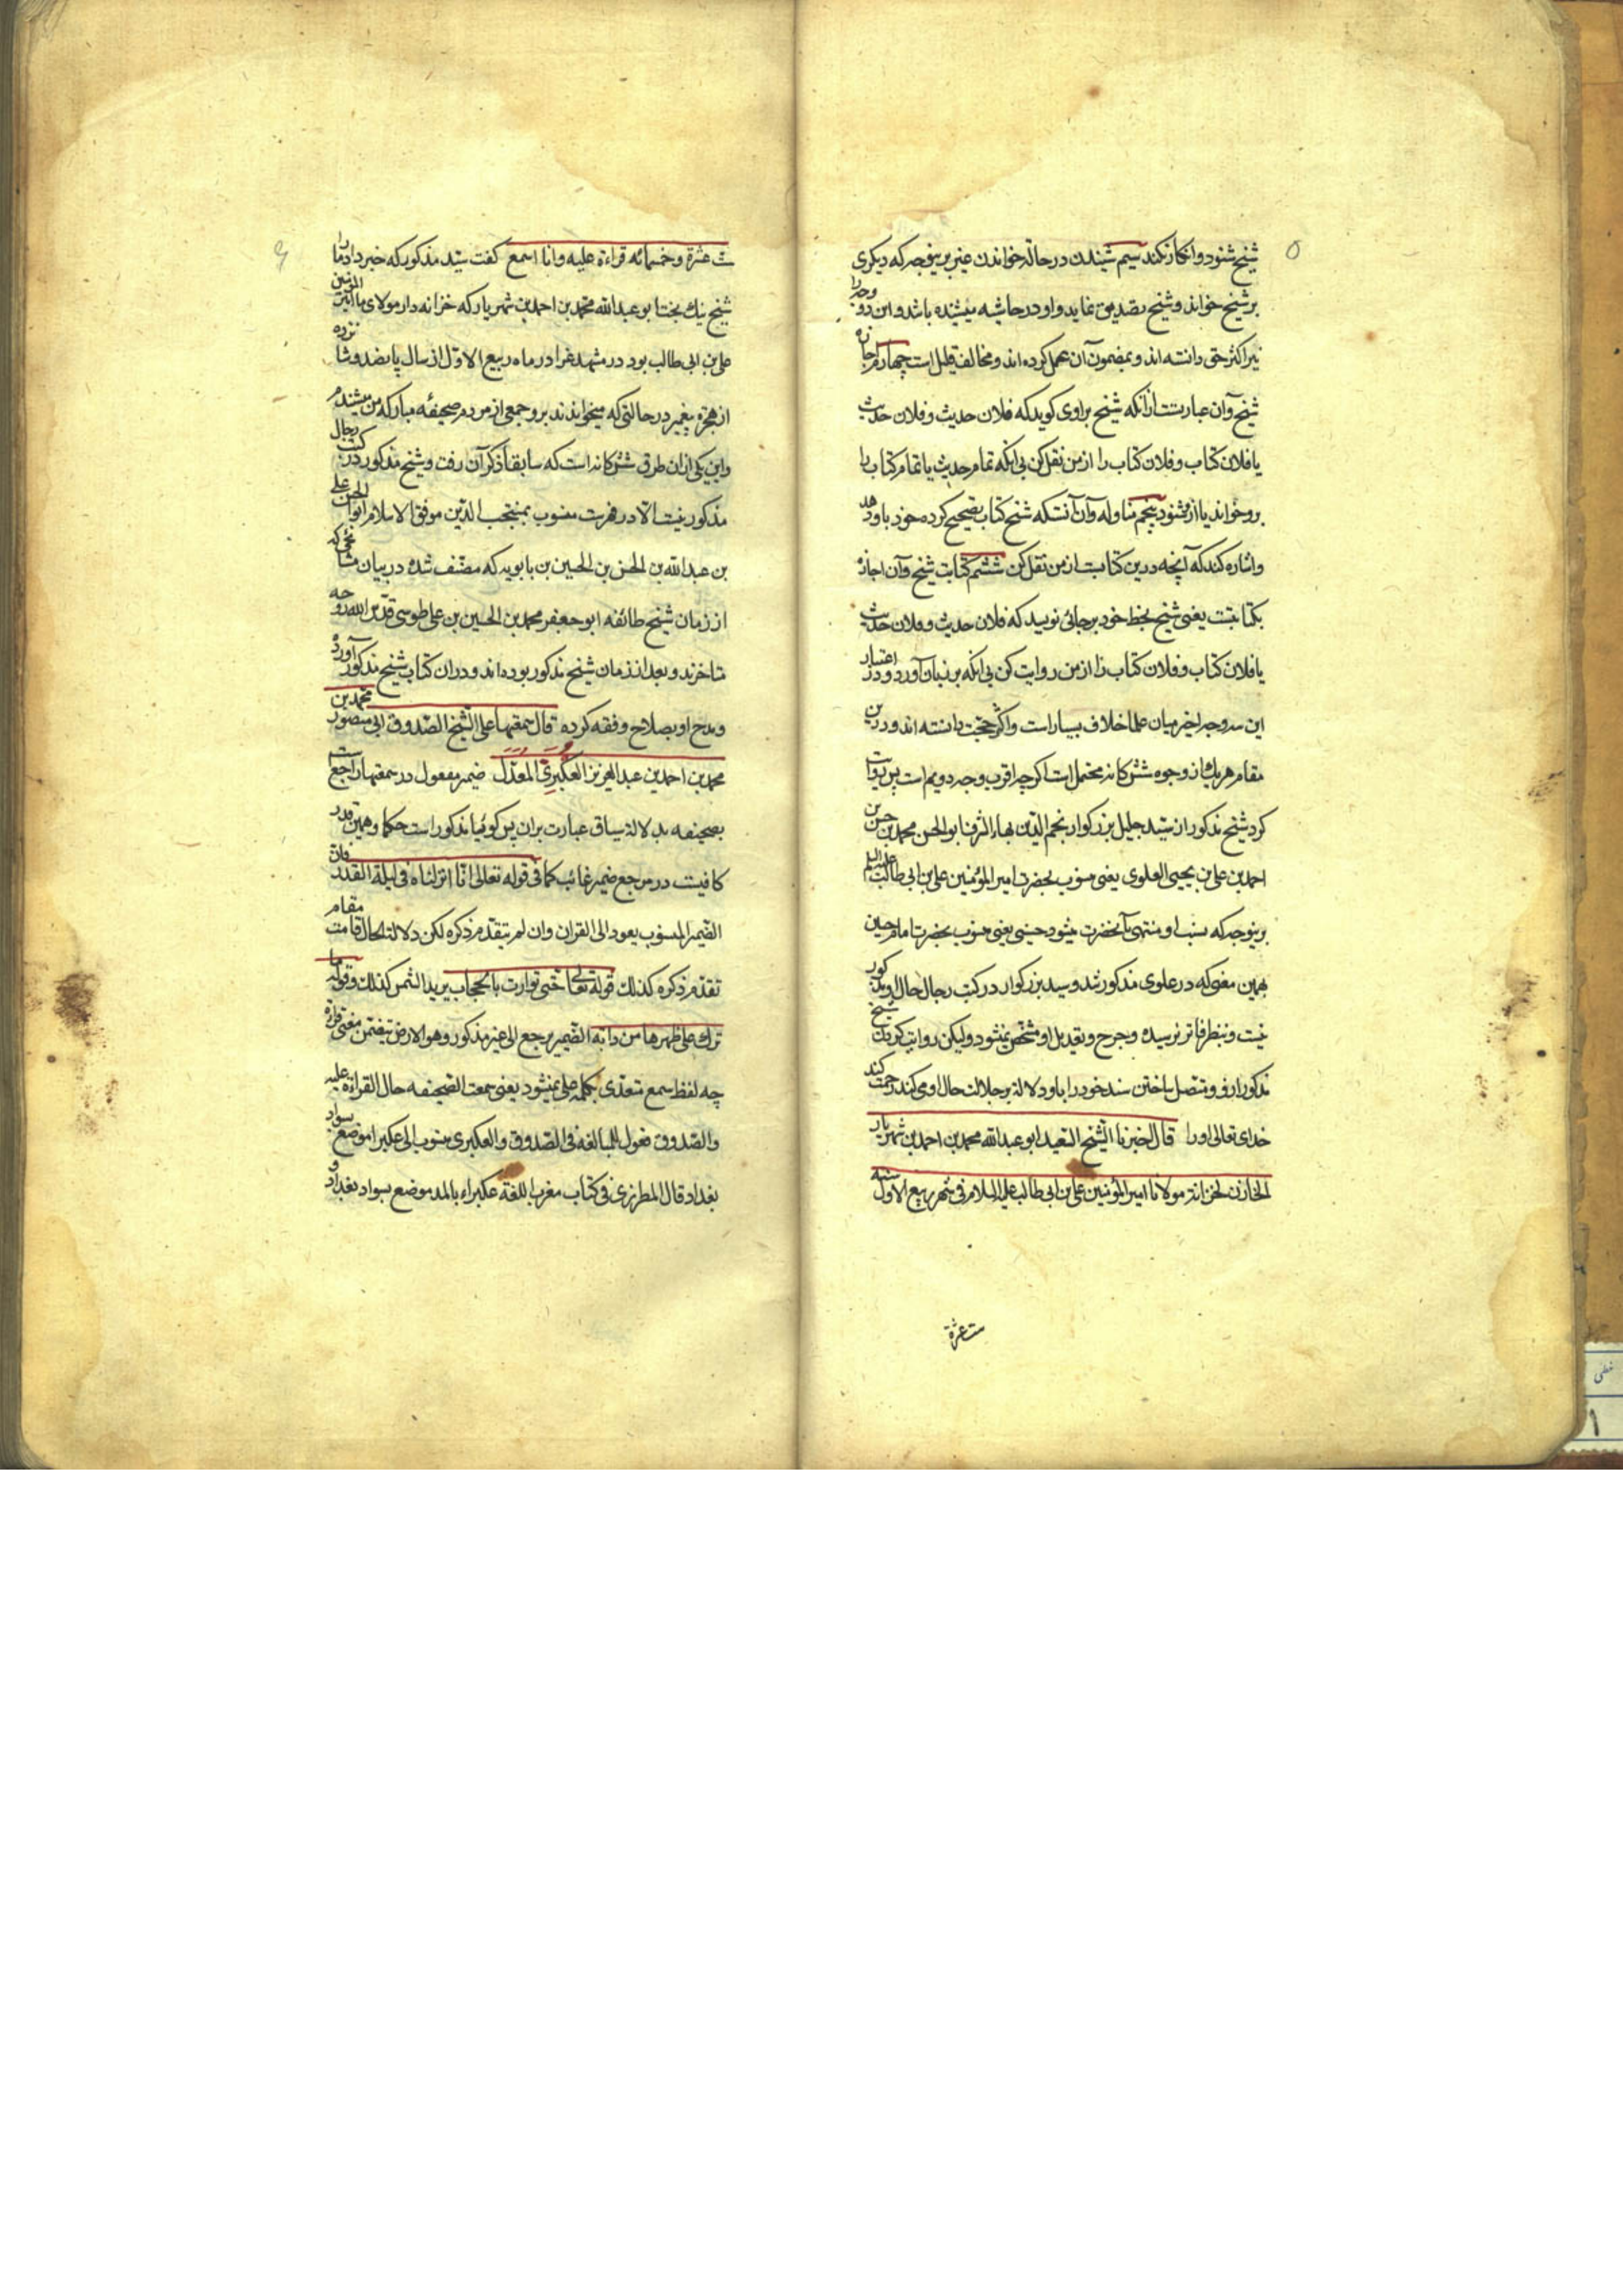 ۵
شیخ شنود و انکار نکند سیم شنیدن در حالة خواندن غیر برینوجه که دیگری
بر شیخ خواند و شیخ تصدیق نماید و او در حاشیه میشنیده باشد و این دو وجه را
نیز اکثر حق دانسته اند و بمضمون آن عمل کرده اند و مخالف قلیل است چهارم اجازه
شیخ و آن عبارتست از آنکه شیخ براوی کوید که فلان حدیث و فلان حدیث
یا فلان کتاب و فلان کتاب را از من نقل کن بی آنکه تمام حدیث یا تمام کتاب را
برو خواند یا ازو شنود پنجم مناوله و آن آنستکه شیخ کتاب تصحیح کرده خود باو دهد
و اشاره کند که آنچه درین کتابست از من نقل کن ششم کتابت شیخ و آن اجازه
بکتابتست یعنی شیخ بخط خود بر جائی نویسد که فلان حدیث و فلان حدیث
یا فلان کتاب و فلان کتاب را از من روایت کن بی آنکه بر زبان آورد و در اعتبار
این سه وجه اخیر میان علما خلاف بسیار است و اکثر حجت دانسته اند و درین
مقام هر یک از وجوه شش کانه محتمل است اکرچه اقرب وجه دویم است پس روایت
کرد شیخ مذکور از سید جلیل بزرکوار نجم الدین بهاء الشرف ابو الحسن محمد بن حسن بن
احمد بن علی بن یحیی العلوی یعنی منسوب بحضرت امیر المؤمنین علی بن ابی طالب علیه السلم
برینوجه که نسب او منتهی بآنحضرت میشود حسینی یعنی منسوب بحضرت امام حسین
بهمین معنی که در علوی مذکور شد و سید بزرکوار در کتب رجال حال او مذکور
نیست و بنظر قاصر نرسیده و جرح و تعدیل او مشخص نمیشود ولیکن روایت کردن شیخ
مذکور ازو و متصل ساختن سند خود را باو دلالة بر جلالت حال او می کند رحمت کند
خدای تعالی او را قال اخبرنا الشیخ السعید ابو عبدالله محمد بن احمد بن شهریار
الخازن لخزانة مولانا امیر المؤمنین علی بن ابی طالب علیه السلام فی شهر ربیع الاول سنه
ست عشرة
ست عشرة و خمسمائه قراءة علیه و انا اسمع کفت سید مذکور که خبر داد ما را
شیخ نیک بخت ابو عبدالله محمد بن احمد بن شهریار که خزانه دار مولای ما امیر المؤمنین
علی بن ابی طالب بود در مشهد غرا در ماه ربیع الاول از سال پانصد و شانزده
از هجرة پیغمبر در حالتی که میخواندند برو جمعی از مردم صحیفه مبارکه من میشنیدم
و این یکی از آن طرق شش کانه است که سابقا ذکر آن رفت و شیخ مذکور در کتب رجال
مذکور نیست الا در فهرست منسوب بمنتجب الدین موفق الاسلام ابو الحسن علی
بن عبدالله بن الحسن بن الحسین بن بابویه که مصنف شده در بیان مشایخی که
از زمان شیخ طائفه ابو جعفر محمد بن الحسین بن علی طوسی قدس الله روحه
متاخرند و بعد از زمان شیخ مذکور بوده اند و در آن کتاب شیخ مذکور آورده
و مدح او بصلاح و فقه کرده قال سمعتها علی الشیخ الصدوق ابی منصور محمد بن
محمد بن احمد بن عبدالعزیز العکبری المعدل ضمیر مفعول در سمعتها راجع است
بصحیفه بدلالة سیاق عبارت بر آن پس کوئیا مذکور است حکما و همین قدر
کافیست در مرجع ضمیر غائب کما فی قوله تعالی انا انزلناه فی لیلة القدر فان
الضمیر المنسوب یعود الی القران و ان لم یتقدم ذکره لکن دلالة الحال قامت مقام
تقدم ذکره کذلک قوله تعالی حتی توارت بالحجاب یرید الشمس کذلک و قوله ما
ترک علی ظهرها من دابة الضمیر یرجع الی غیر مذکور و هو الارض بتضمین معنی قراءة
چه لفظ سمع متعدی بکلمه علی نمیشود یعنی سمعت الصحیفه حال القراءة علیه
و الصدوق فعول للمبالغة فی الصدوق و العکبری منسوب الی عکبرا موضع بسواد
بغداد قال المطرزی فی کتاب مغرب اللغة عکبراء بالمد موضع بسواد بغداد و